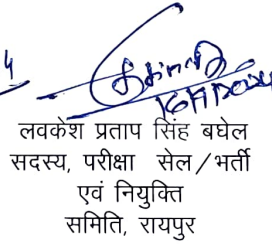 लवकेश प्रताप सिंह बघेल
सदस्य, परीक्षा सेल/भर्ती
एवं नियुक्ति
समिति, रायपुर